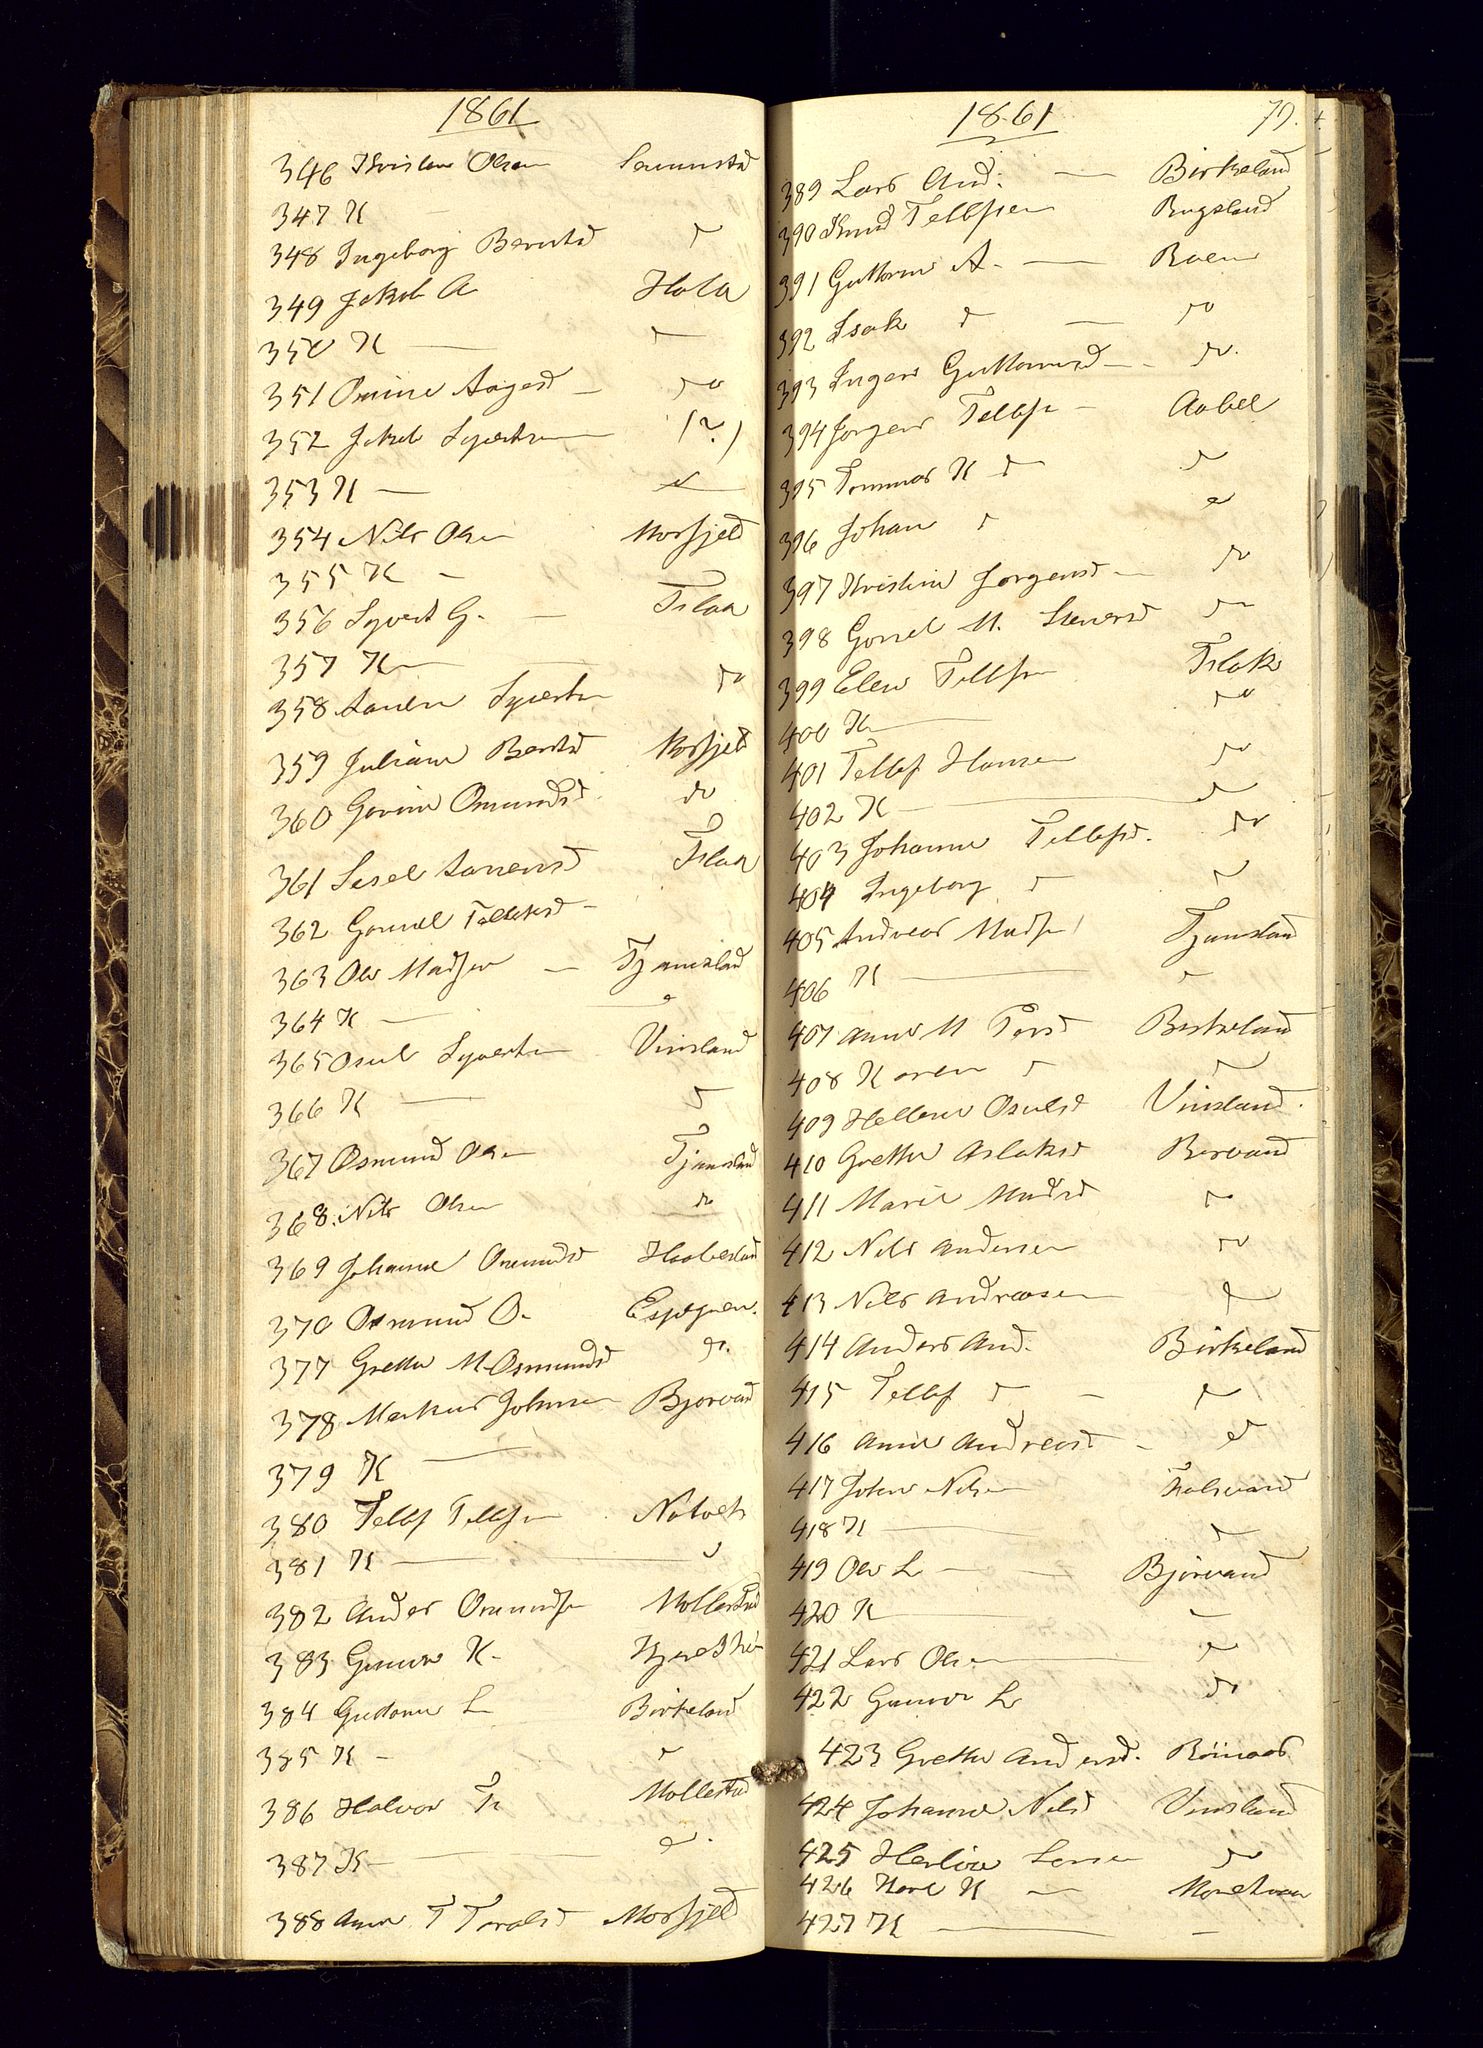 1861
346 Kristen Olsen Senumstad
347 K
348 Ingeborg Berntsd
349 Jakob A Hola
350 K —
351 Omine Aagesd — do
352 Jakob Syvertsen (?)
353 K —
354 Nils Olsen Morfjeld
355 K —
356 Syvert G. — Islaa
357 K —
358 Syvertsen do
359 Juliane Berntsd Morfjeld
360 Gorine Omundsd. do
361 Sesel Islaa
362 Gonuel
363 Ole Madsen — Tjamsland
364 K —
365 Osul Syvertsen Vinsland
366 K —
367 Osmund Olsen Tjamsland
368. Nils Olsen do
369 Johanne Omundsd
370 Osmund O.
377 Grethe M. Osmundsd do.
378 Markus Johnsen Bjorvand
379 K —
380 Tellef Tellefsen
381 K —
382 Anders Omundsen Mollestad
383 Gunvor K.
384 Guttorm L Birkeland
385 K —
386 Halvor T. Mollestad
387 K —
388 Anne T Toralsd Morfjeld
1861 79.
389 Lars And. — Birkeland
390 Knud Tellefsen
391 Guttorm A. — Roen
392 Isak do — do
393 Inger Guttormsd — do.
394 Jorgen Tellefs — Aabel
395 Tommas K do
396 Johan
397 Kristine Jorgensd — do
398 Gonel M. do
399 Elen Tellefsen Islak
400 K — do
401 Tellef Hansen do
402 K —
403 Johanne Tellefsd. do
404 Ingeborg
405 Andreas Madsen Tjamsland
406 K —
407 Anne M Birkeland
408 Karen
409 Hellene Osulsd Vinsland.
410 Grethe Aslaksd Borvand
411 Maril Madsd
412 Nils Andersen do
413 Nils Andreasen
414 Anders And. Birkeland
415 Tellef do —
416 Anne Andreasd —
417 John Nilsen
418 K —
419 Ole L — Bjorvand
420 K —
421 Lars Olsen —
422 Gunvor L do
423 Grethe Andersd.
424 Johanne Nilsd Vinsland
425 do
426 K —
427 K —